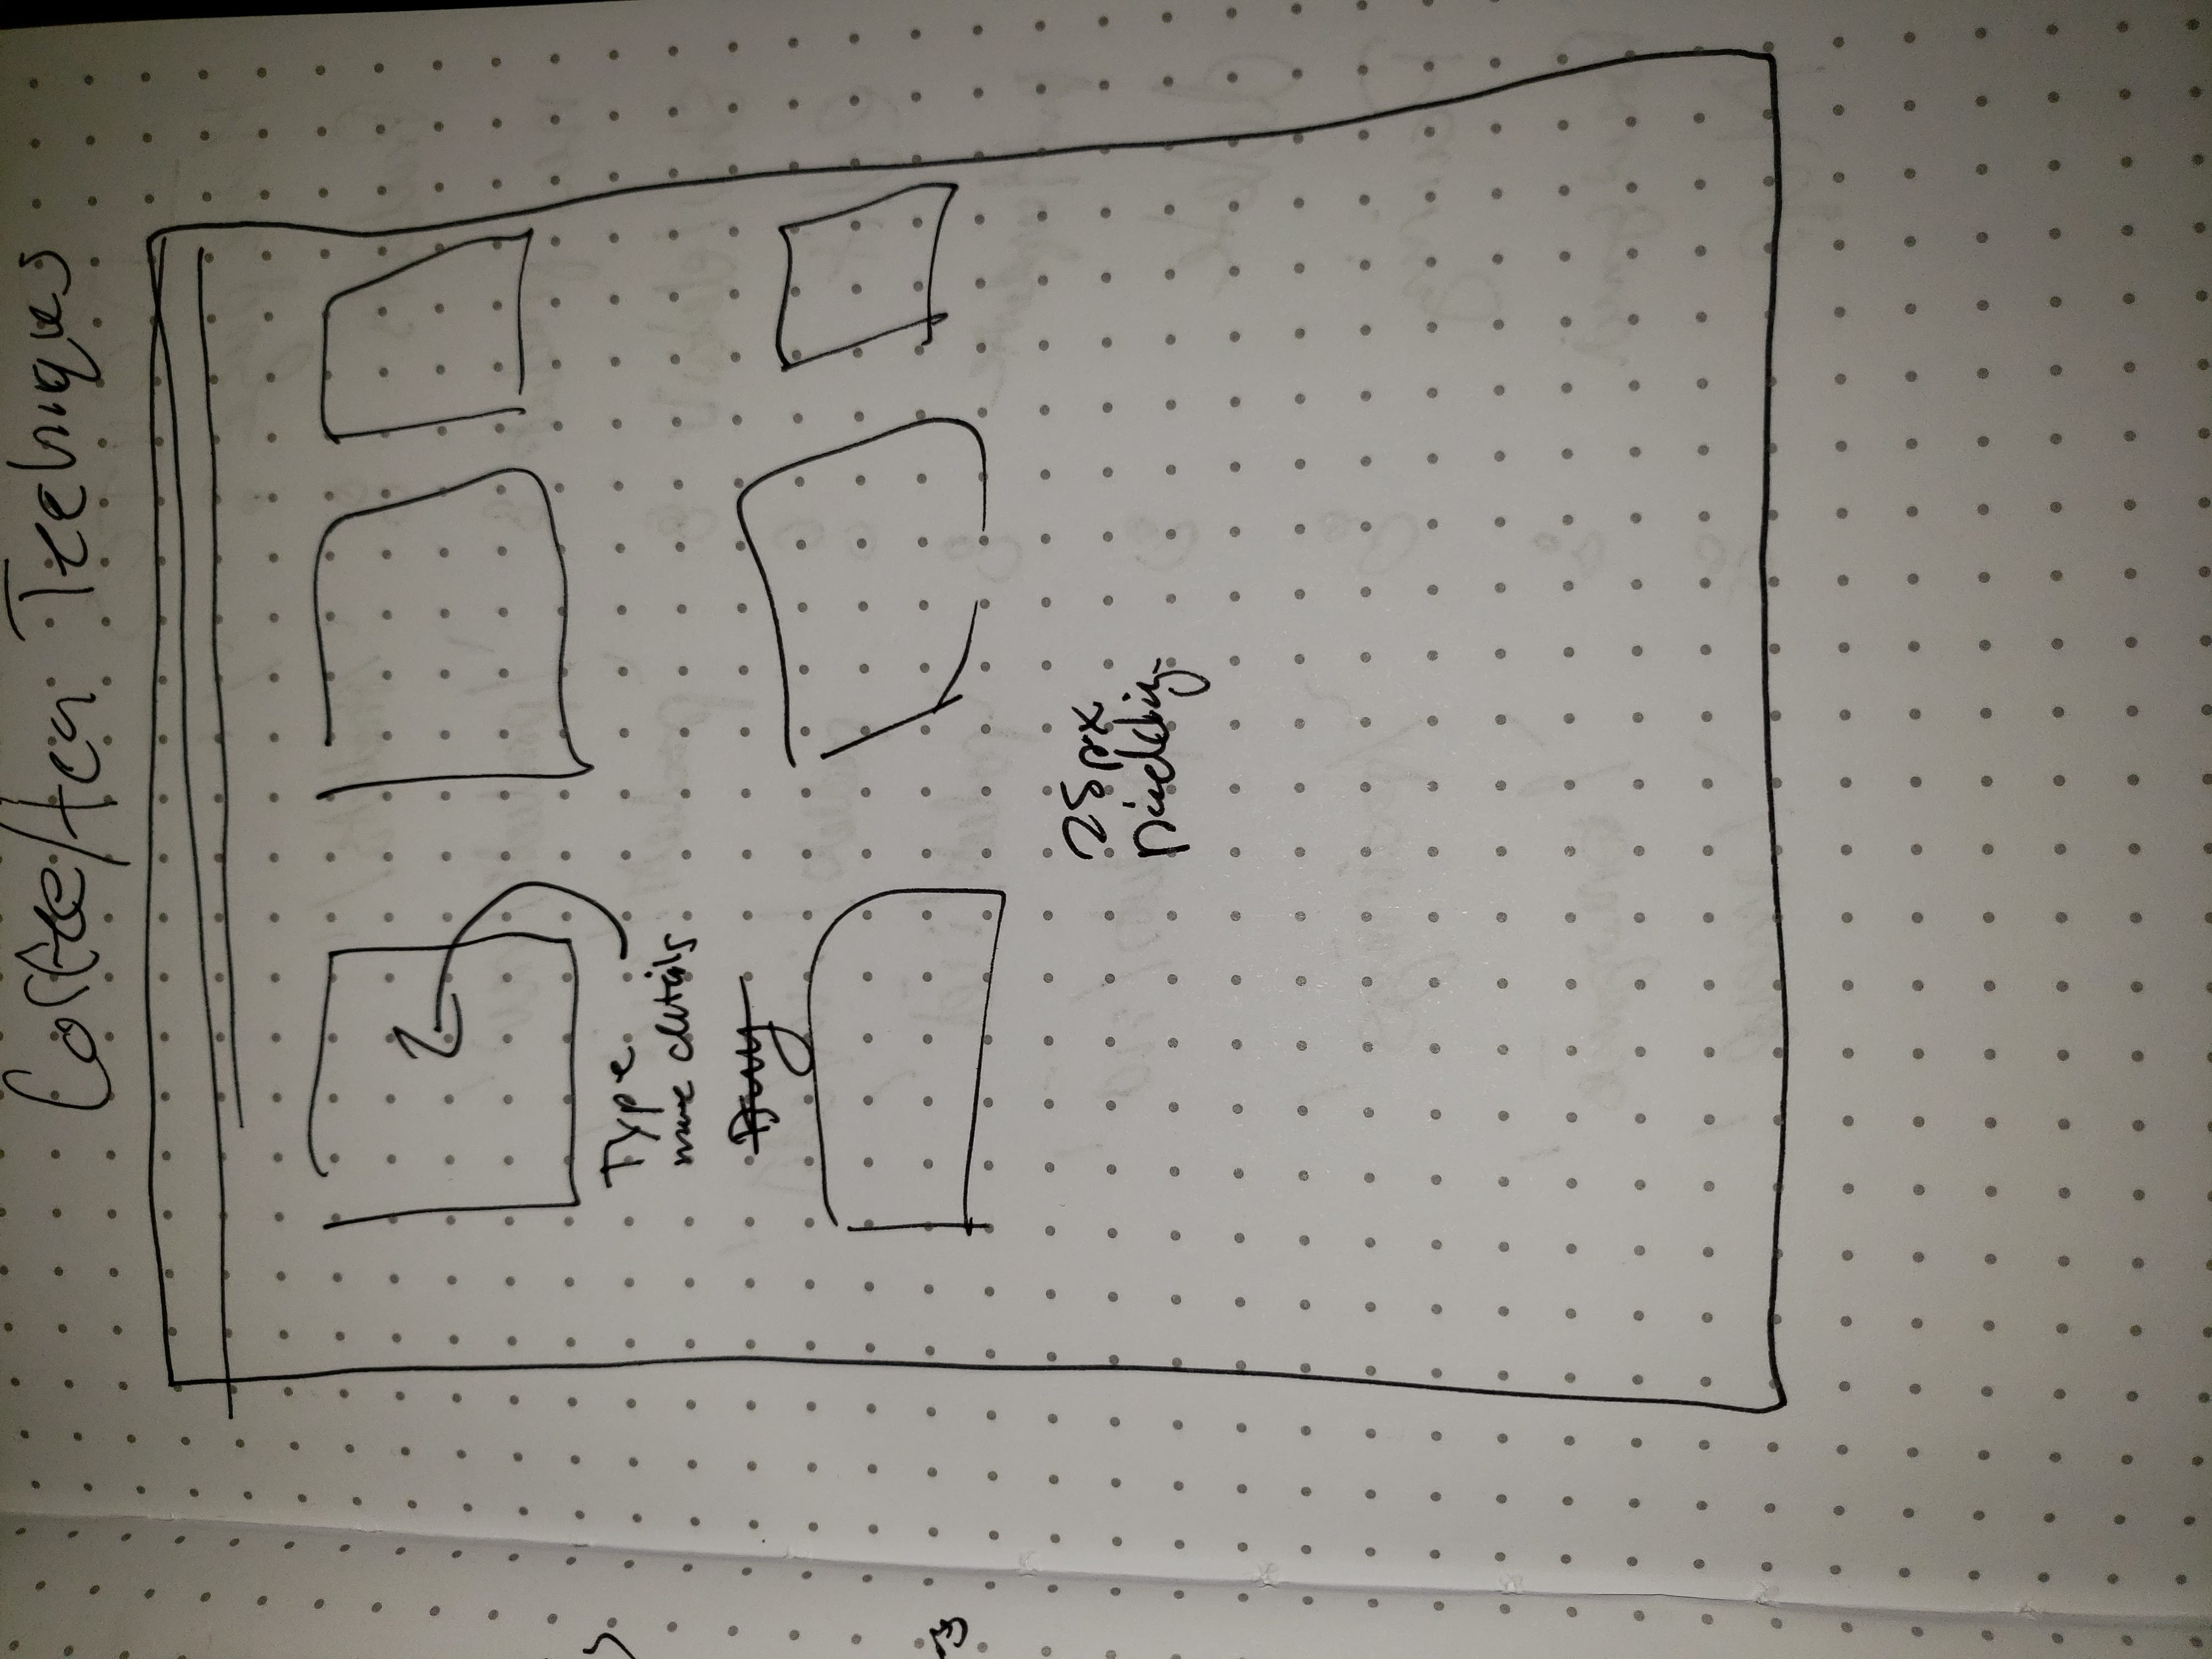 Coffee/tea Techniques
Type
more details
Buy
25px
padding